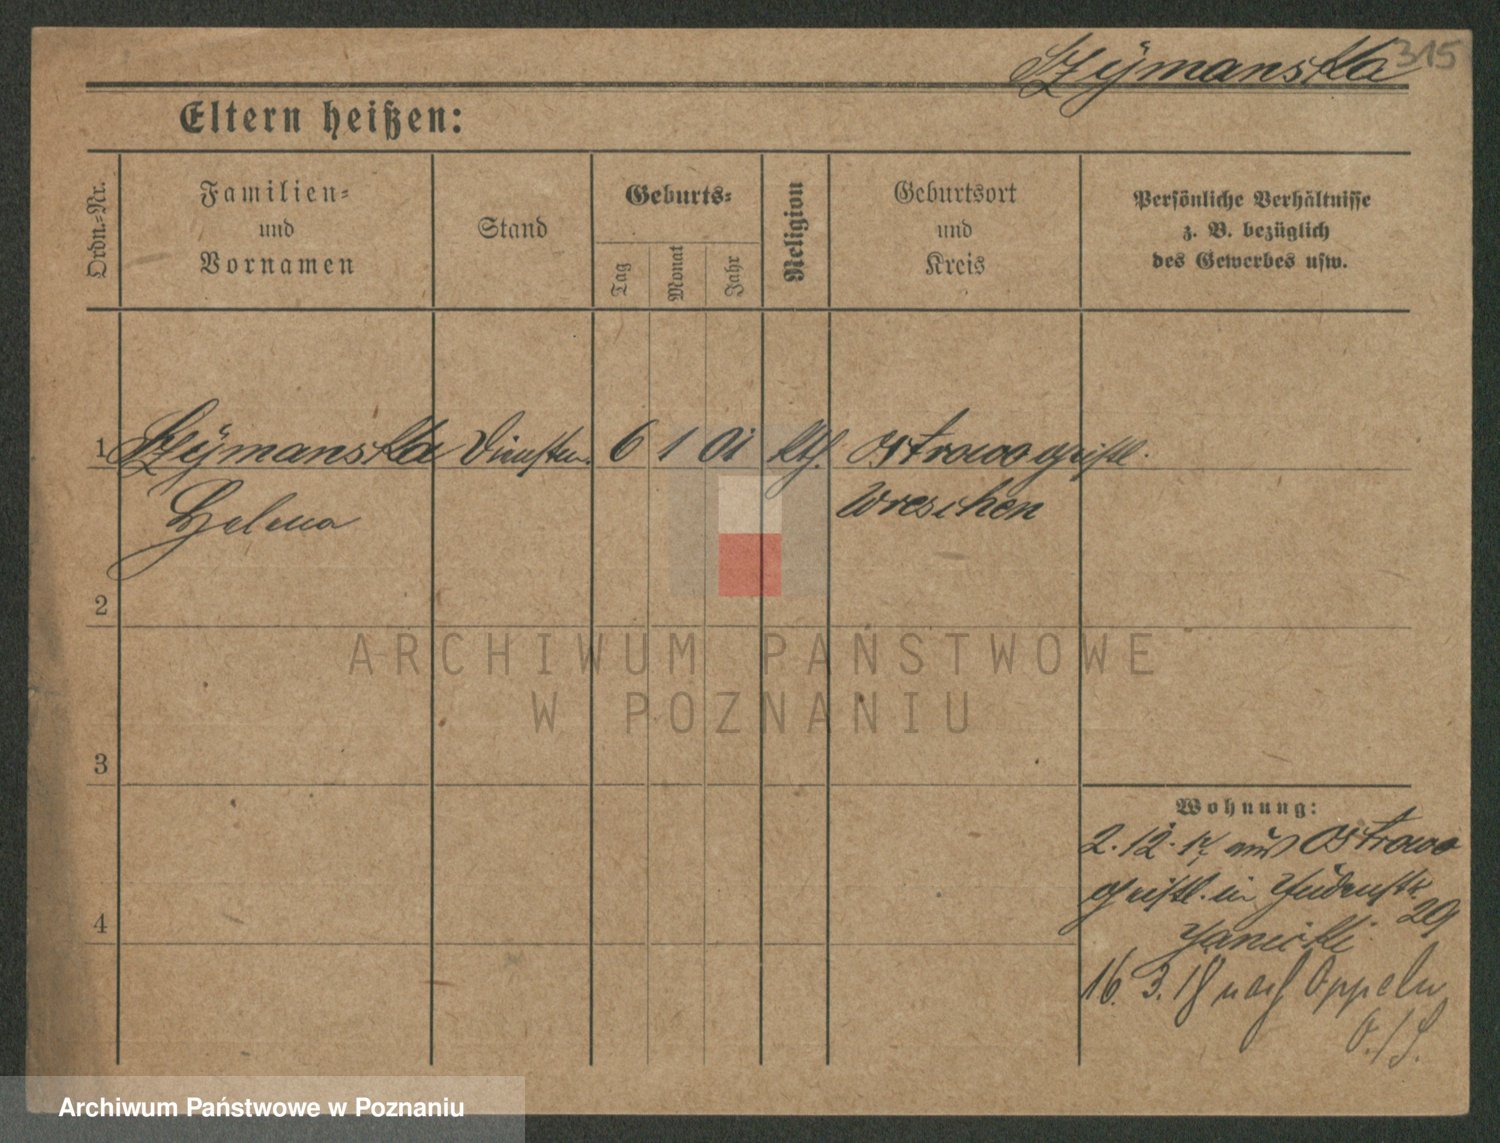 Szÿmanska 315
Eltern heißen:
Ordn.-Nr.
Familien-
und
Vornamen
Stand
Geburts-
Tag
Monat
Jahr
Religion
Geburtsort
und
Kreis
Persönliche Verhältnisse
z. B. bezüglich
des Gewerbes usw.
1 Szÿmanska Dienstm. 6 1 01 kth. Ostrowo geistl.
Helena Wreschen
2
3
4
Wohnung:
2. 12. 17 aus Ostrowo
geistl. in Judenstr.
29
Janicki
16. 3. 18 nach Oppeln
O./S.
ARCHIWUM PAŃSTWOWE
W POZNANIU
Archiwum Państwowe w Poznaniu